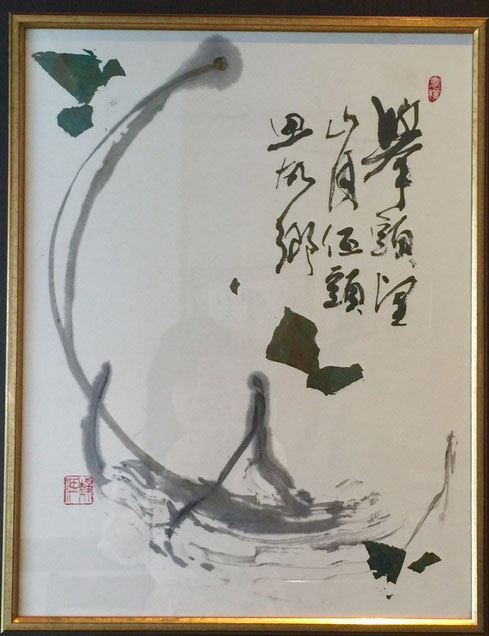 舉頭望
山月低頭
思故鄉